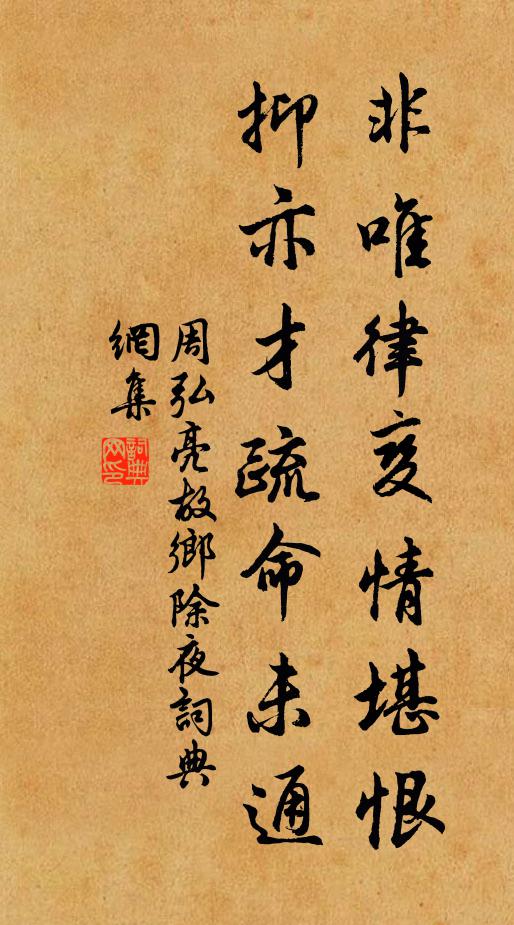 非唯律变情堪恨
抑亦才疏命未通
周弘亮故鄉除夜詞典
網集
詞典网印